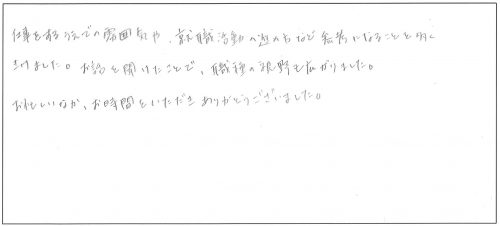 仕事をするうえでの雰囲気や、就職活動の進め方など参考になることを多く
きけました。お話を聞けたことで、職種の視野も広がりました。
お忙しいなか、お時間をいただきありがとうございました。